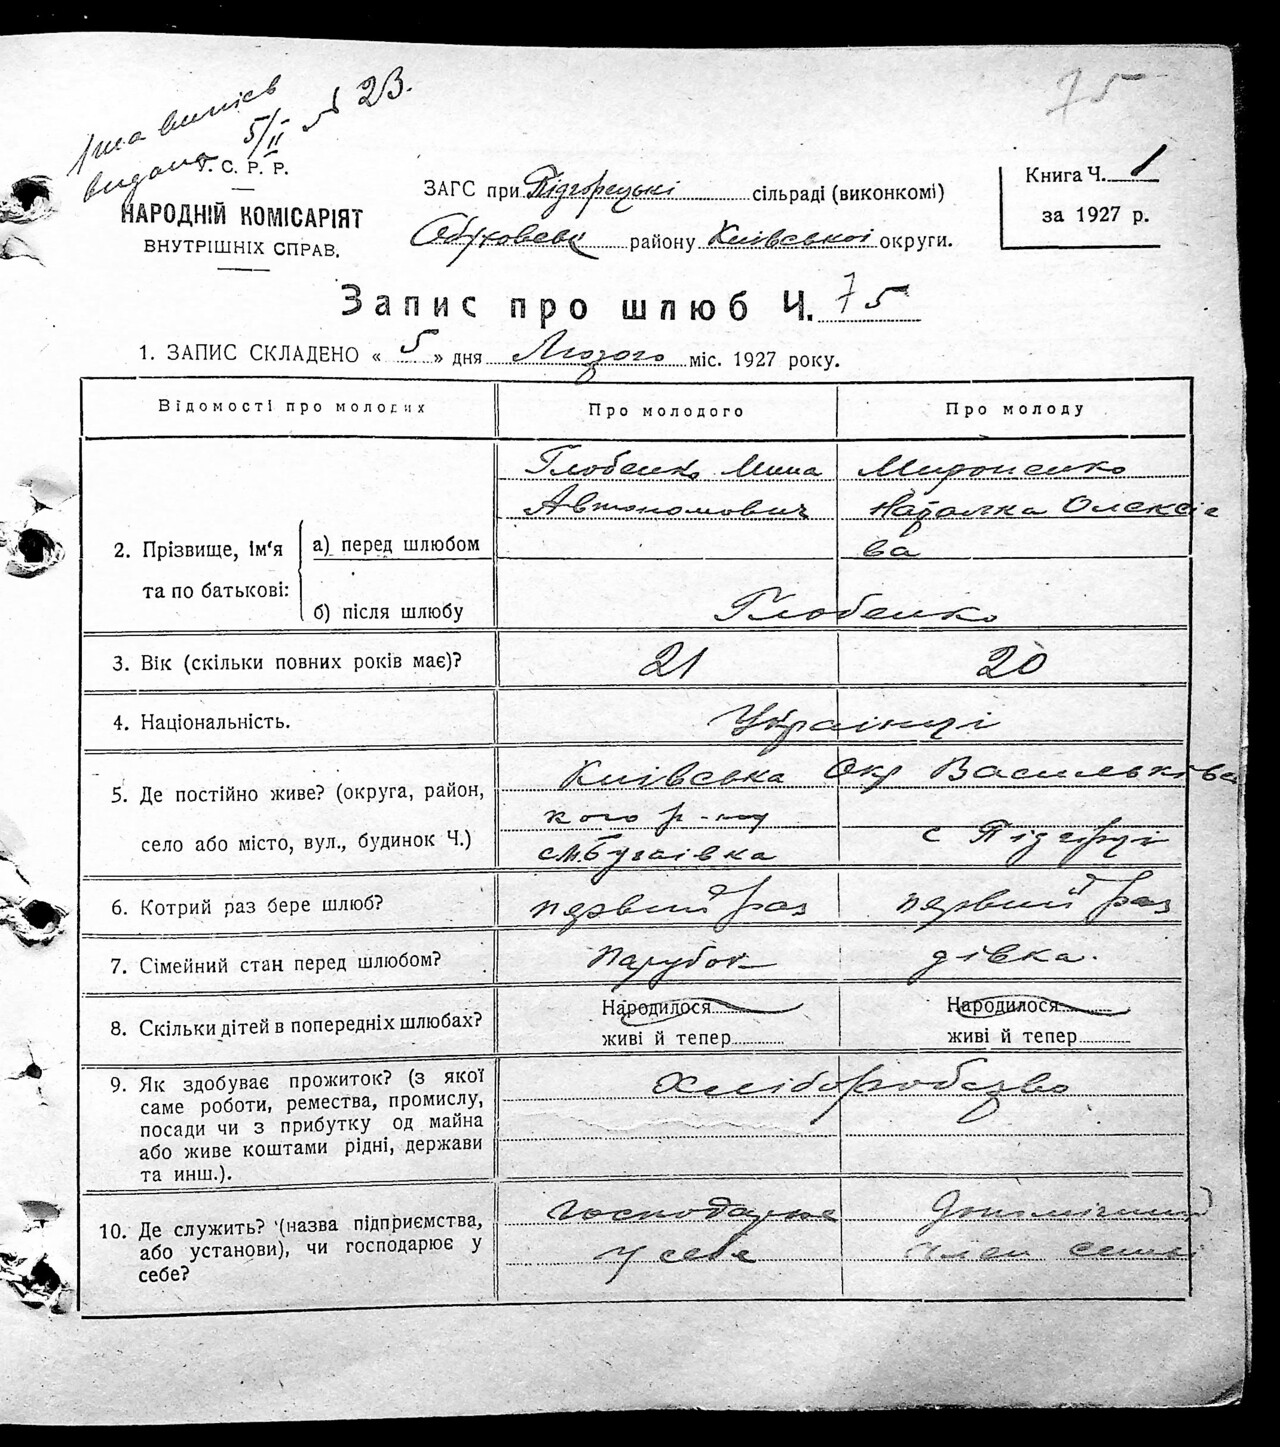 75
1ша випись
видана 5/II № 23.
У. С. Р. Р.
НАРОДНІЙ КОМІСАРІЯТ
ВНУТРІШНІХ СПРАВ.
ЗАГС при Підгорецькі сільраді (виконкомі)
Обуховськ району Київської округи.
Книга Ч. 1
за 1927 р.
Запис про шлюб Ч. 75
1. ЗАПИС СКЛАДЕНО « 5 » дня Лютого міс. 1927 року.
Відомості про молодих Про молодого Про молоду
2. Прізвище, ім'я та по батькові:
а) перед шлюбом
Глобенко Миша
Автономович
Мироненко
Наталка Олексіє
ва
б) після шлюбу
Глобенко
3. Вік (скільки повних років має)? 21 20
4. Національність. Українці
5. Де постійно живе? (округа, район,
село або місто, вул., будинок Ч.)
Київська Окр Васильківсь
кого р-ну
с Підгірці
6. Котрий раз бере шлюб? первий раз первий раз
7. Сімейний стан перед шлюбом? парубок дівка.
8. Скільки дітей в попередніх шлюбах?
Народилося
живі й тепер
Народилося
живі й тепер
9. Як здобуває прожиток? (з якої
саме роботи, ремества, промислу,
посади чи з прибутку од майна
або живе коштами рідні, держави
та инш.).
Хліборобство
10. Де служить? (назва підприємства,
або установи), чи господарює у
себе?
Господарює
у себе
Допомічний
член семьі